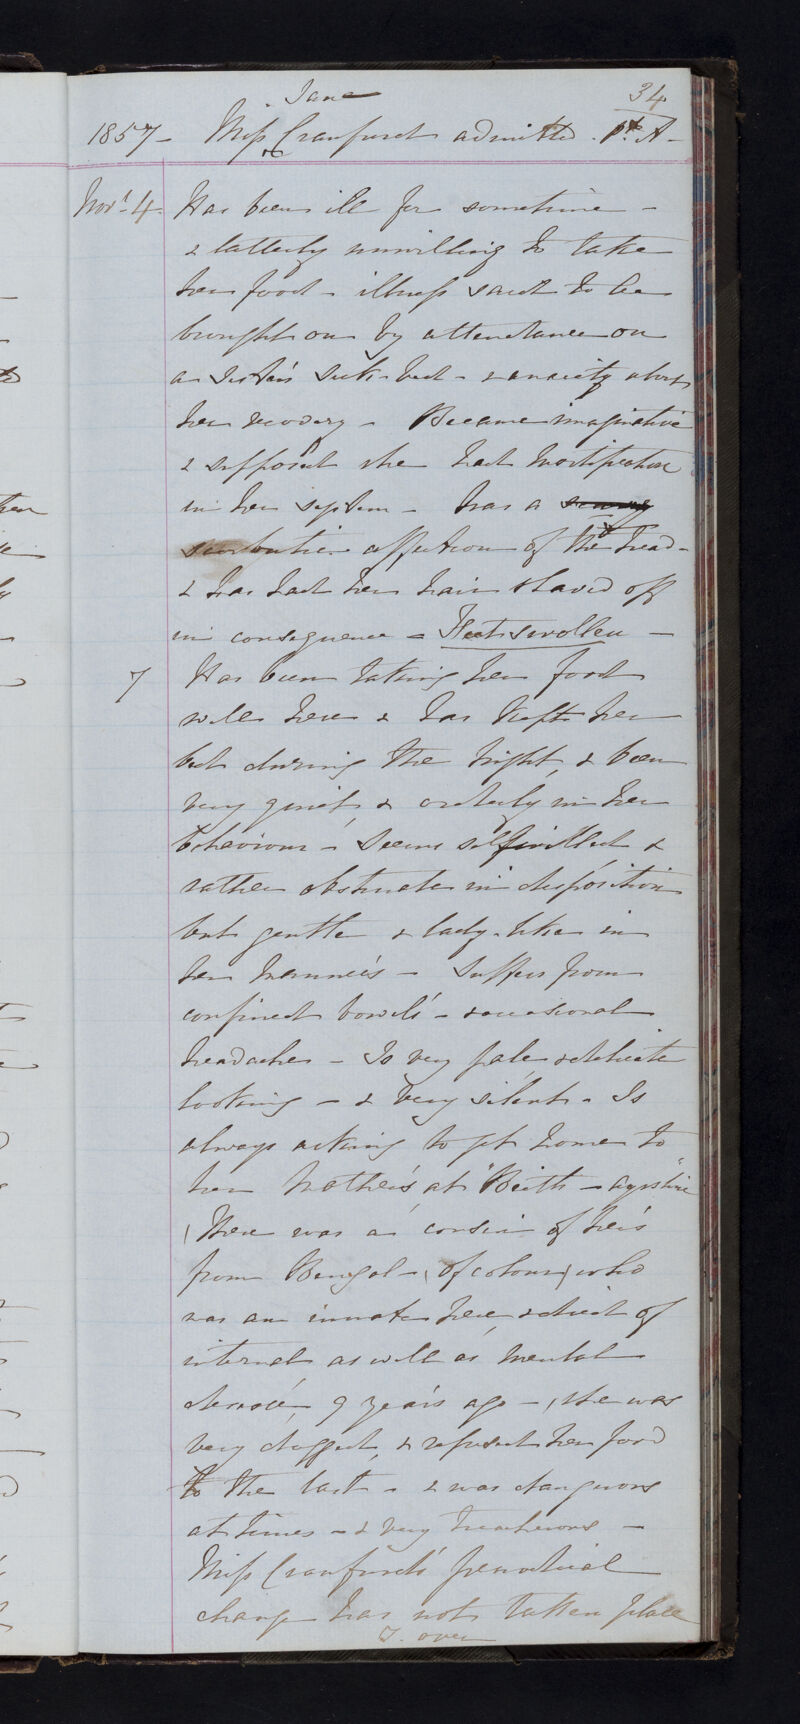 34
Jane
1857 - Miss Craufurd admitted. 1st A -
Novr. 4. Has been ill for sometime -
& latterly unwilling to take
her food - illness said to be
brought on by attendance on
a sister's sick-bed - & anxiety about
her recovery - Became imaginative
& supposed she had mortification
in her system - has a
scorbutic affection of the head -
& has had her hair shaved off
in consequence - Feet swollen -
7 Has been taking her food
well here & has kept her
bed during the night, & been
very quiet, & orderly in her
behaviour - Seems selfwilled &
rather obstinate in disposition
but gentle & lady-like in
her manners - Suffers from
confined bowels - & occasional
headaches - Is very pale & delicate
looking - & very silent - Is
always asking to get home to
her Mother's at "Beith - Ayrshire"
(There was a cousin of her's
from Bengal - (of colour) who
was an inmate here & died of
internal as well as mental
disease, 9 years ago -, she was
very dogged, & refused her food
to the last - & was dangerous
at times - & very treacherous -
Miss Craufurd's periodical
change has not taken place
T. over